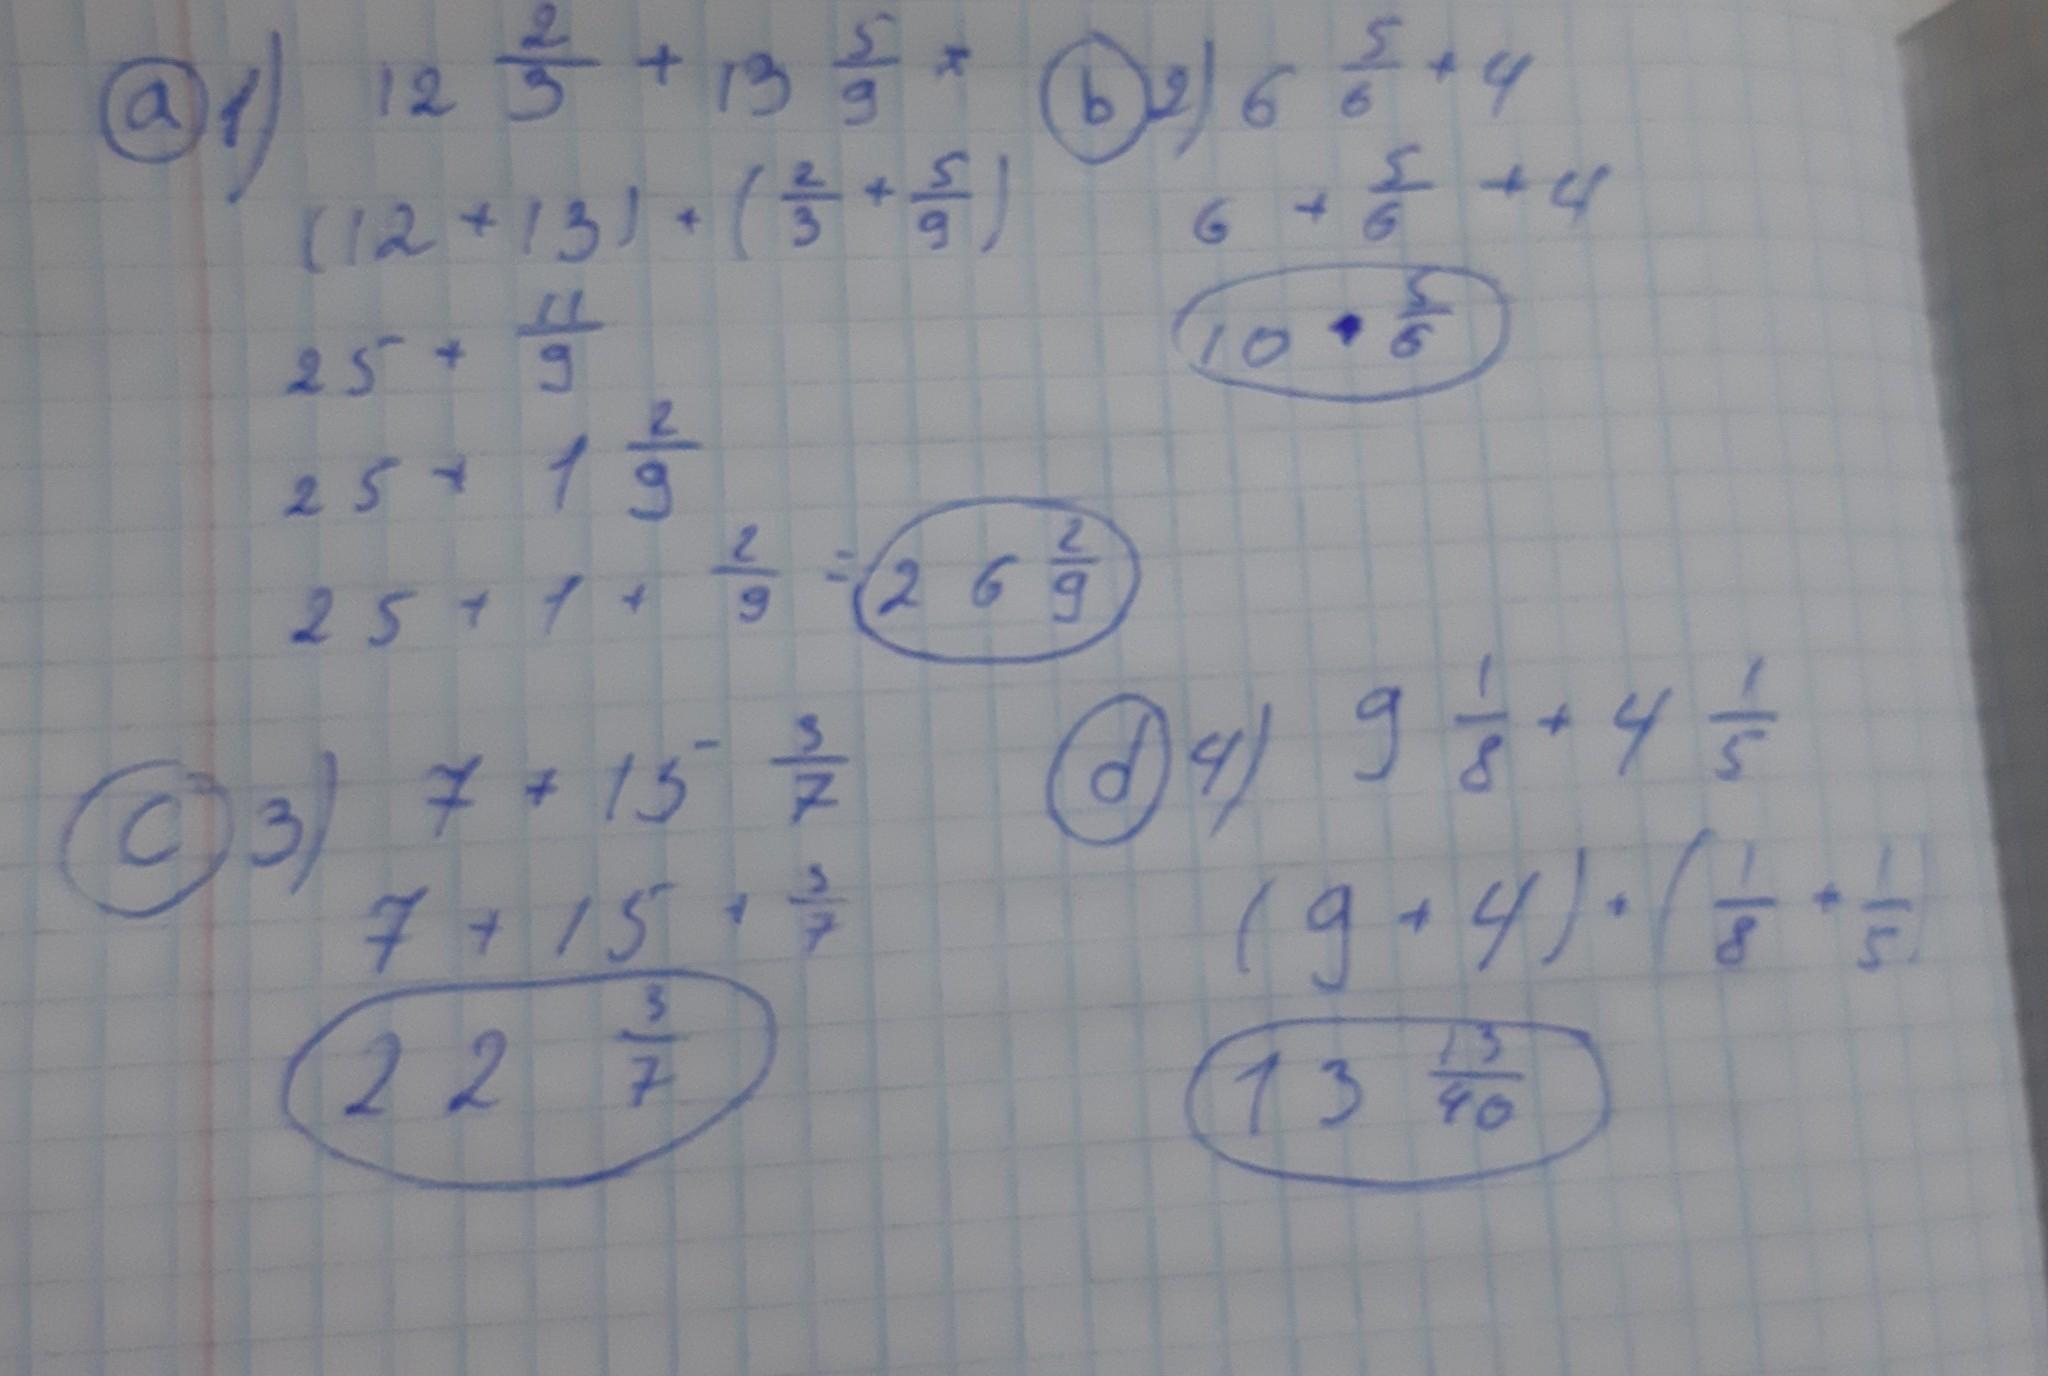 a 1) 12 2/3 + 13 5/9 =
(12 + 13) + (2/3 + 5/9)
25 + 11/9
25 + 1 2/9
25 + 1 + 2/9 = 26 2/9
b 2) 6 5/6 + 4
6 + 5/6 + 4
10 5/6
c 3) 7 + 15 3/7
7 + 15 + 3/7
22 3/7
d 4) 9 1/8 + 4 1/5
(9 + 4) + (1/8 + 1/5)
13 13/40